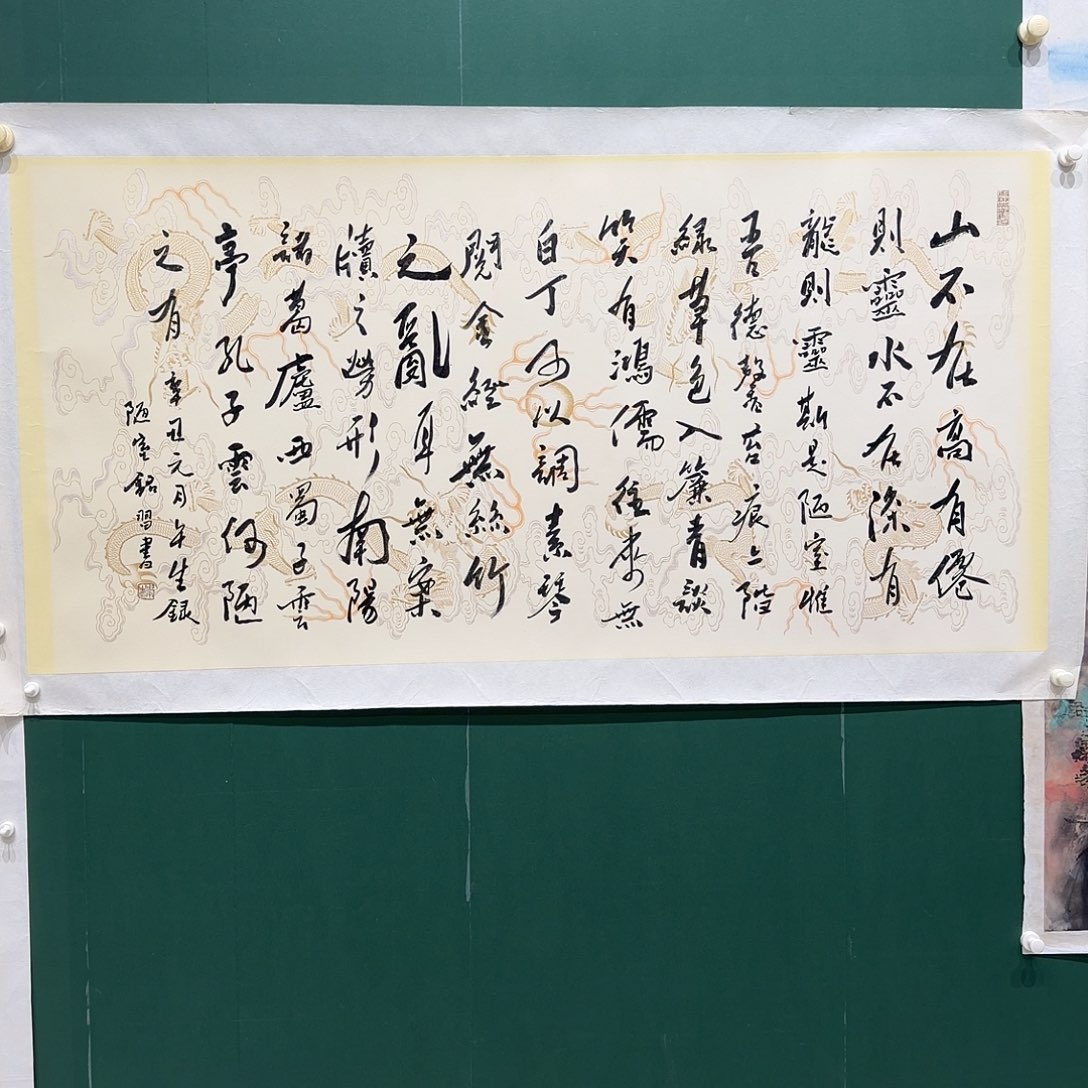 山不在高有僊
則靈水不在深有
龍則靈斯是陋室惟
吾德馨苔痕上階
綠草色入簾青談
笑有鴻儒往來無
白丁可以調素琴
閱金經無絲竹
之亂耳無案
牘之勞形南陽
諸葛廬西蜀子雲
亭孔子雲何陋
之有 辛丑元月午生銀
陋室銘習書